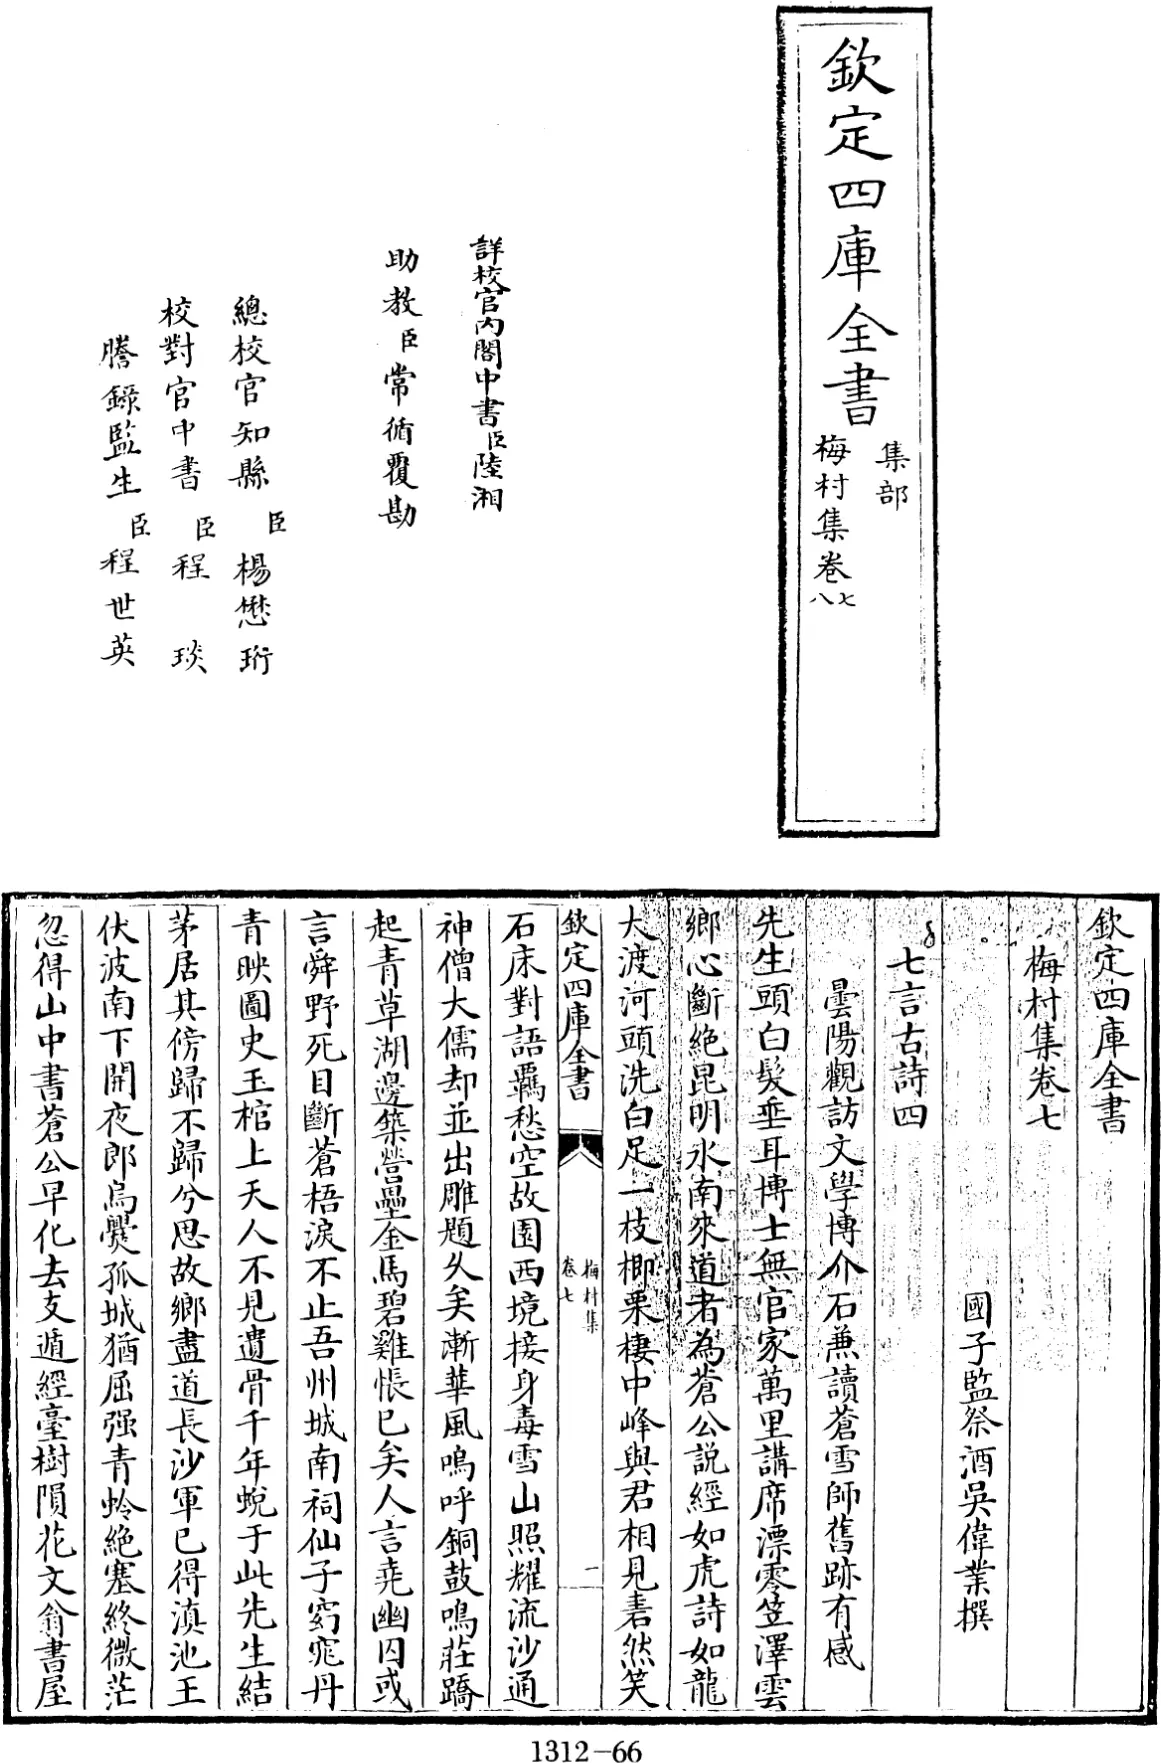 欽定四庫全書
集部
梅村集卷七八
詳校官內閣中書臣陸湘
助教臣常循覆勘
總校官知縣臣楊懋珩
校對官中書臣程琰
謄錄監生臣程世英
欽定四庫全書
梅村集卷七
國子監祭酒吳偉業撰
七言古詩四
曇陽觀訪文學博介石兼讀蒼雪師舊跡有感
先生頭白髮垂耳博士無官家萬里講席漂零笠澤雲
鄉心斷絶昆明水南來道者為蒼公説經如虎詩如龍
大渡河頭洗白足一枝楖栗棲中峰與君相見砉然笑
欽定四庫全書
梅村集
卷七
一
石床對語羈愁空故園西境接身毒雪山照耀流沙通
神僧大儒却並出雕題久矣漸華風嗚呼銅鼓鳴莊蹻
起青草湖邊築營壘金馬碧雞悵已矣人言堯幽囚或
言舜野死目斷蒼梧淚不止吾州城南祠仙子窈窕丹
青映圖史玉棺上天人不見遺骨千年蛻于此先生結
茅居其傍歸不歸兮思故鄉盡道長沙軍已得滇池王
伏波南下開夜郎烏爨孤城猶屈强青蛉絶塞終微茫
忽得山中書蒼公早化去支遁經臺樹隕花文翁書屋
1312-66